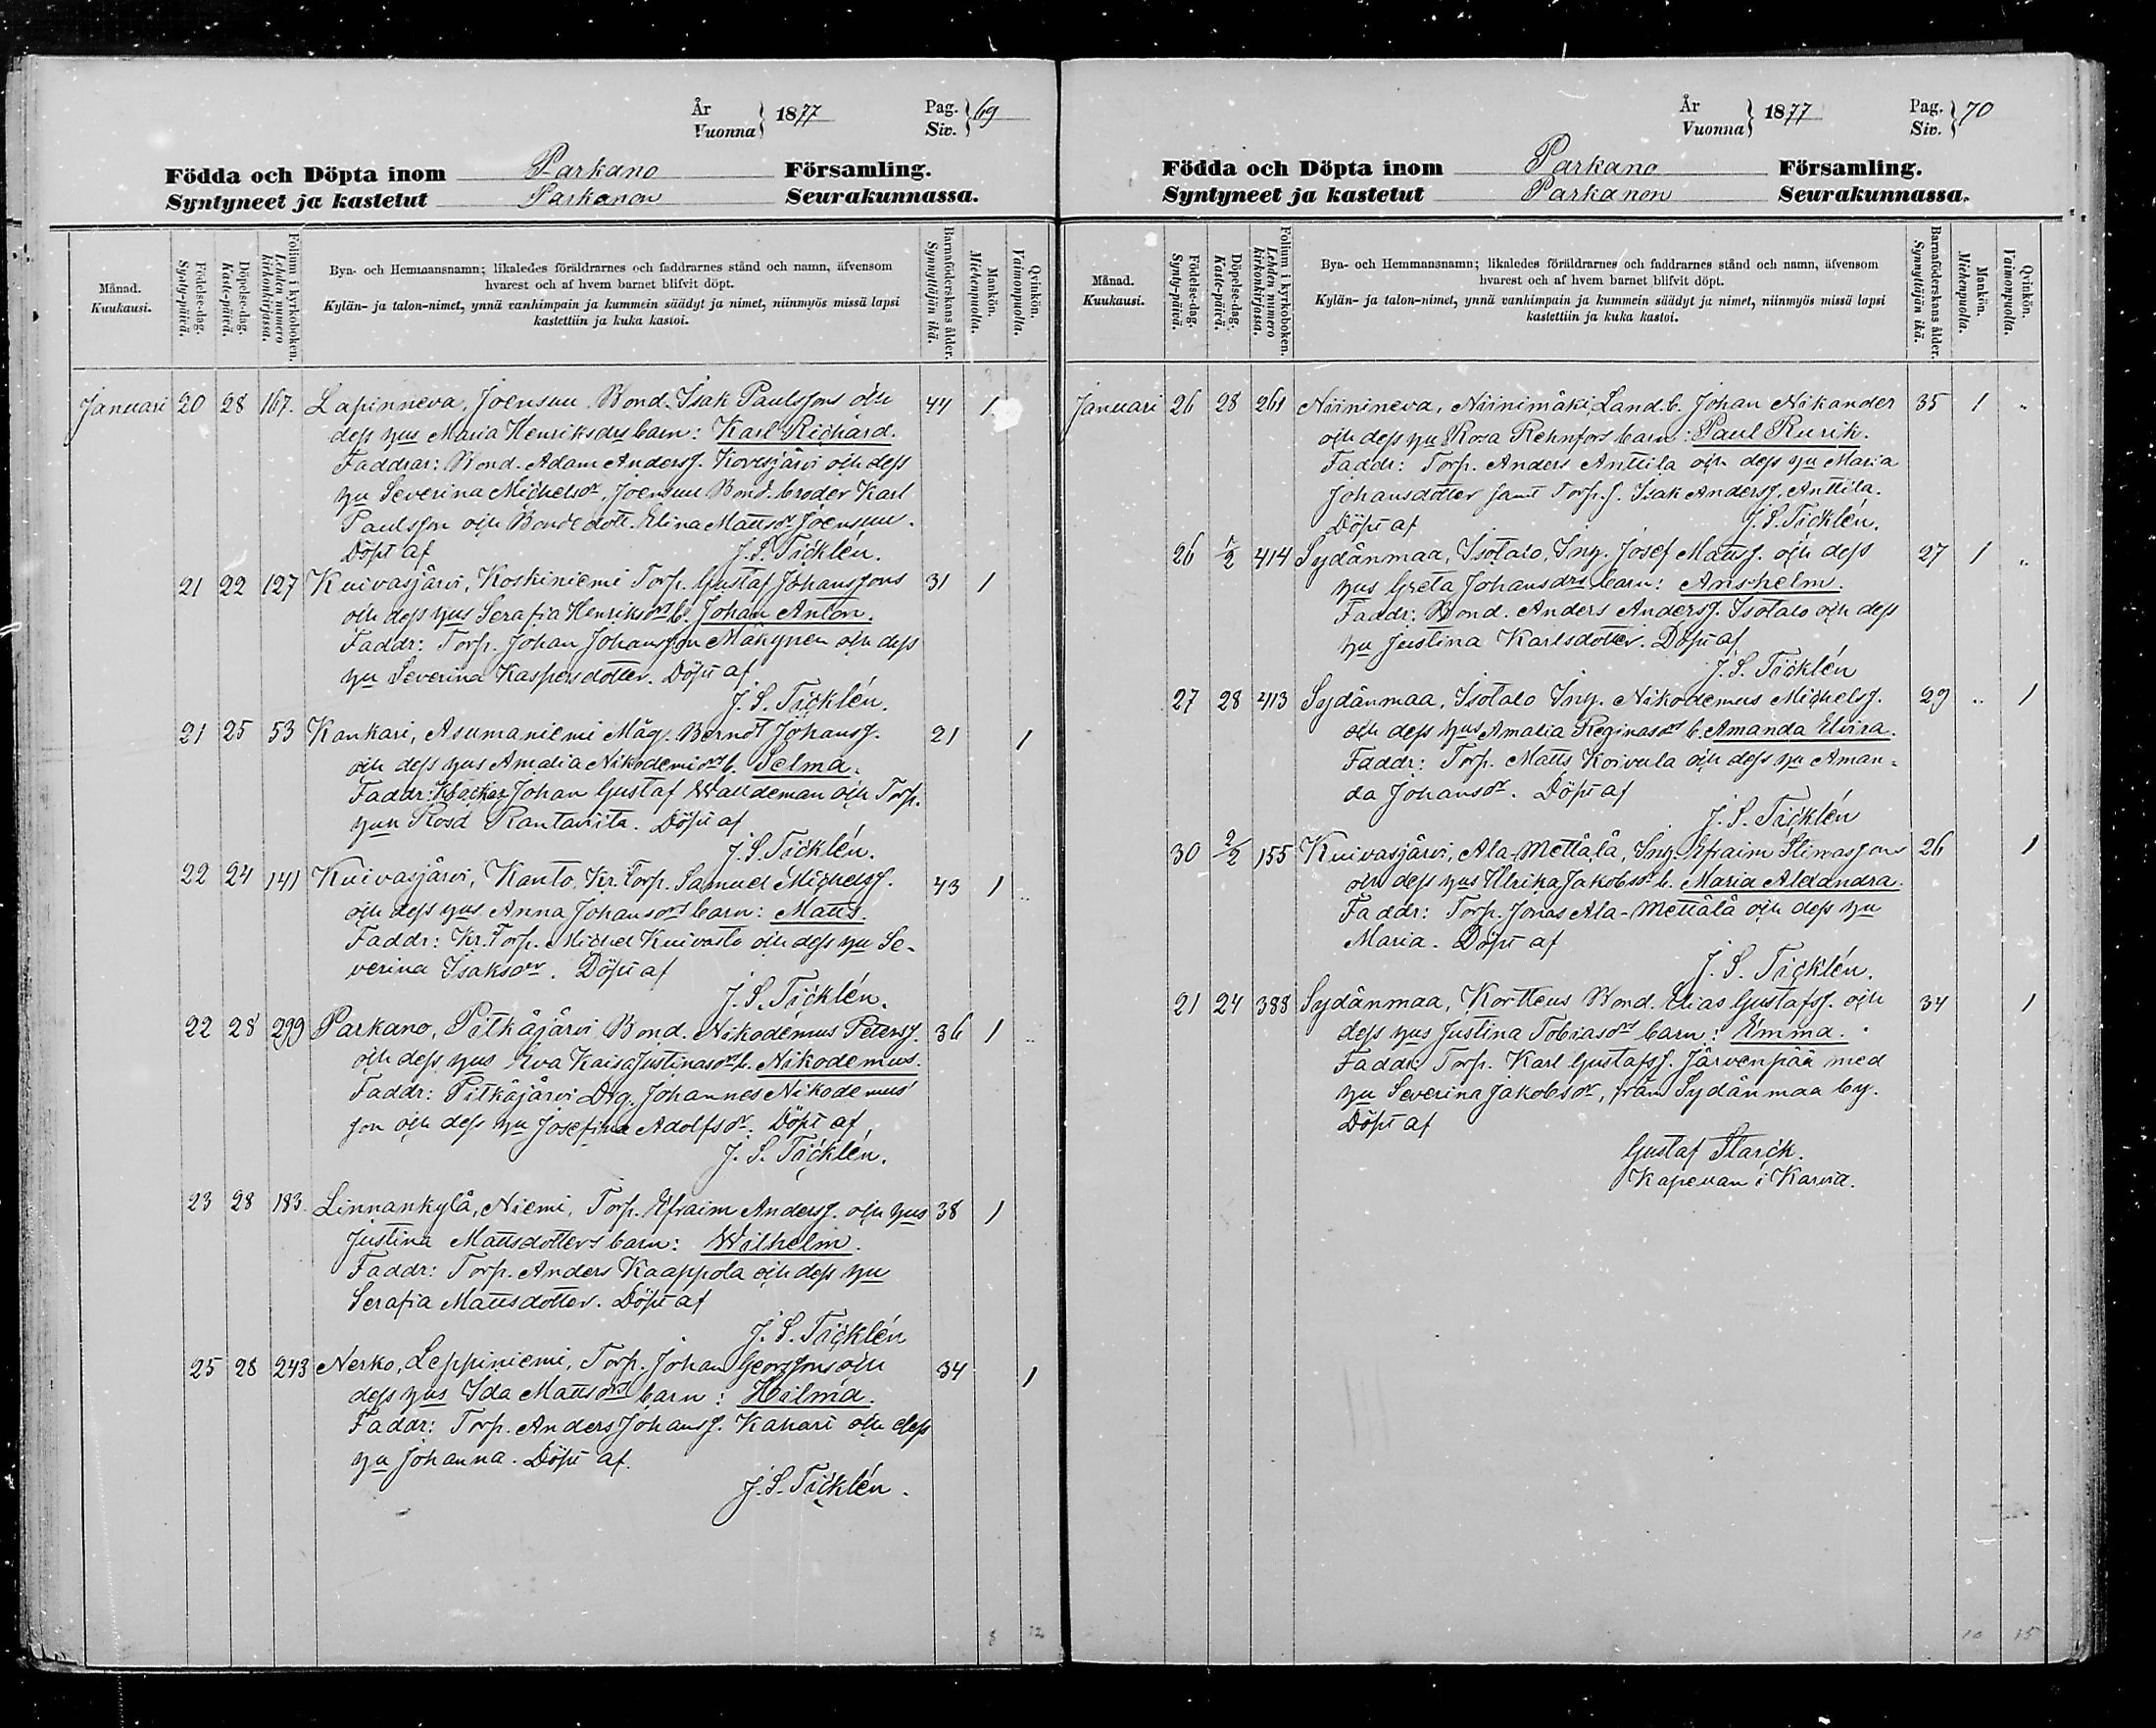 År
Vuonna } 1877
Pag.
Siv. } 69
Födda och Döpta inom Parkano Församling.
Syntyneet ja kastetut Parkanon Seurakunnassa.
Månad.
Kuukausi.
Födelse-dag.
Synty-päivä.
Döpelse-dag.
Kaste-päivä.
Folium i kyrkoboken.
Lehden numero
kirkonkirjassa.
Bya- och Hemmansnamn; likaledes föräldrarnes och faddrarnes stånd och namn, äfvensom
hvarest och af hvem barnet blifvit döpt.
Kylän- ja talon-nimet, ynnä vanhimpain ja kummein säädyt ja nimet, niinmyös missä lapsi
kastettiin ja kuka kastoi.
Barnaföderskans ålder.
Synnyttäjän ikä.
Mankön.
Miehenpuolia.
Qvinkön.
Vaimonpuolia.
Januari 20 28 167. Lapinneva, Joensuu Bond. Isak Paulssons och 44 1
dess hus Maria Henriksdrs barn: Karl Richard.
Faddrar: Bond. Adam Anderss. Kovesjärvi och dess
hu Severina Michelsdr, Joensuu Bond. broder Karl
Paulsson och Bondedott. Elina Mattsdr Joensuu.
Döpt af J. S. Ticklén.
21 22 127 Kuivasjärvi, Koskiniemi Torp. Gustaf Johanssons 31 1
och dess hus Serafia Henriksdrs b. Johan Anton.
Faddr: Torp. Johan Johansson Mäkynen och dess
hu Severina Kaspersdotter. Döpt af
J. S. Ticklén.
21 25 53 Kankari, Asumaniemi Måg. Berndt Johanss. 21 1
och dess hus Amalia Nikodemidrs b. Selma.
Faddr: Johan Gustaf Walldeman och Torp.
hun Rosa Rantavita. Döpt af
J. S. Ticklén.
22 24 141 Kuivasjärvi, Kanto, Kr. Torp. Samuel Michelss. 43 1 ..
och dess hus Anna Johansdrs barn: Matts.
Faddr: Kr. Torp. Michel Kuivasto och dess hu Se-
verina Isaksdr. Döpt af
J. S. Ticklén.
22 28 299 Parkano, Pitkäjärvi Bond. Nikodemus Peterss. 36 1 ..
och dess hus Eva Kaisa Justinasdrs b. Nikodemus.
Faddr: Pitkäjärvi Drg. Johannes Nikodemus
son och dess hu Josefina Adolfsdr. Döpt af
J. S. Ticklén.
23 28 183. Linnankylä, Niemi, Torp. Efraim Anderss. och hus 38 1
Justina Mattsdotters barn: Wilhelm.
Faddr: Torp. Anders Kaappola och dess hu
Serafia Mattsdotter. Döpt af
J. S. Ticklén
25 28 243 Nerko, Leppiniemi, Torp. Johan Georgssons och 34 1
dess hus Ida Mattsdrs barn: Hilma.
Faddr: Torp. Anders Johanss. Kanari och dess
hu Johanna. Döpt af.
J. S. Ticklén.
8 12
År
Vuonna } 1877
Pag.
Siv. } 70
Födda och Döpta inom Parkano Församling.
Syntyneet ja kastetut Parkanon Seurakunnassa.
Månad.
Kuukausi.
Födelse-dag.
Synty-päivä.
Döpelse-dag.
Kaste-päivä.
Folium i kyrkoboken.
Lehden numero
kirkonkirjassa.
Bya- och Hemmansnamn; likaledes föräldrarnes och faddrarnes stånd och namn, äfvensom
hvarest och af hvem barnet blifvit döpt.
Kylän- ja talon-nimet, ynnä vanhimpain ja kummein säädyt ja nimet, niinmyös missä lapsi
kastettiin ja kuka kastoi.
Barnaföderskans ålder.
Synnyttäjän ikä.
Mankön.
Miehenpuolia.
Qvinkön.
Vaimonpuolia.
Januari 26 28 261 Niinineva, Niinimäki Land.b. Johan Nikander 35 1 ..
och dess hu Rosa Rehnfors barn: Paul Rurik.
Faddr: Torp. Anders Anttila och dess hu Maria
Johansdotter samt Torp.s. Isak Anderss. Anttila.
Döpt af J. S. Ticklén.
26 1/2 414 Sydänmaa, Isotalo, Ing. Josef Mattss. och dess 27 1 ..
hus Greta Johansdrs barn: Anshelm.
Faddr: Bond. Anders Anderss. Isotalo och dess
hu Justina Karlsdotter. Döpt af
J. S. Ticklén
27 28 413 Sydänmaa, Isotalo Ing. Nikodemus Michelss. 29 .. 1
och dess hus Amalia Reginasdrs b. Amanda Elvira.
Faddr: Torp. Matts Koivula och dess hu Aman-
da Johansdr. Döpt af
J. S. Ticklén
30 2/2 155 Kuivasjärvi, Ala-Mettälä, Ing. Efraim Stinassons 26 1
och dess hus Ulrika Jakobsdrs b. Maria Alexandra.
Faddr: Torp. Jonas Ala-Mettälä och dess hu
Maria. Döpt af
J. S. Ticklén.
21 24 388 Sydänmaa, Kortteus Bond. Elias Gustafss. och 34 1
dess hus Justina Tobiasdrs barn: Emma.
Faddr: Torp. Karl Gustafss. Järvenpää med
hu Severina Jakobsdr, från Sydänmaa by.
Döpt af
Gustaf Starck.
Kapellan i Karvia.
10 15